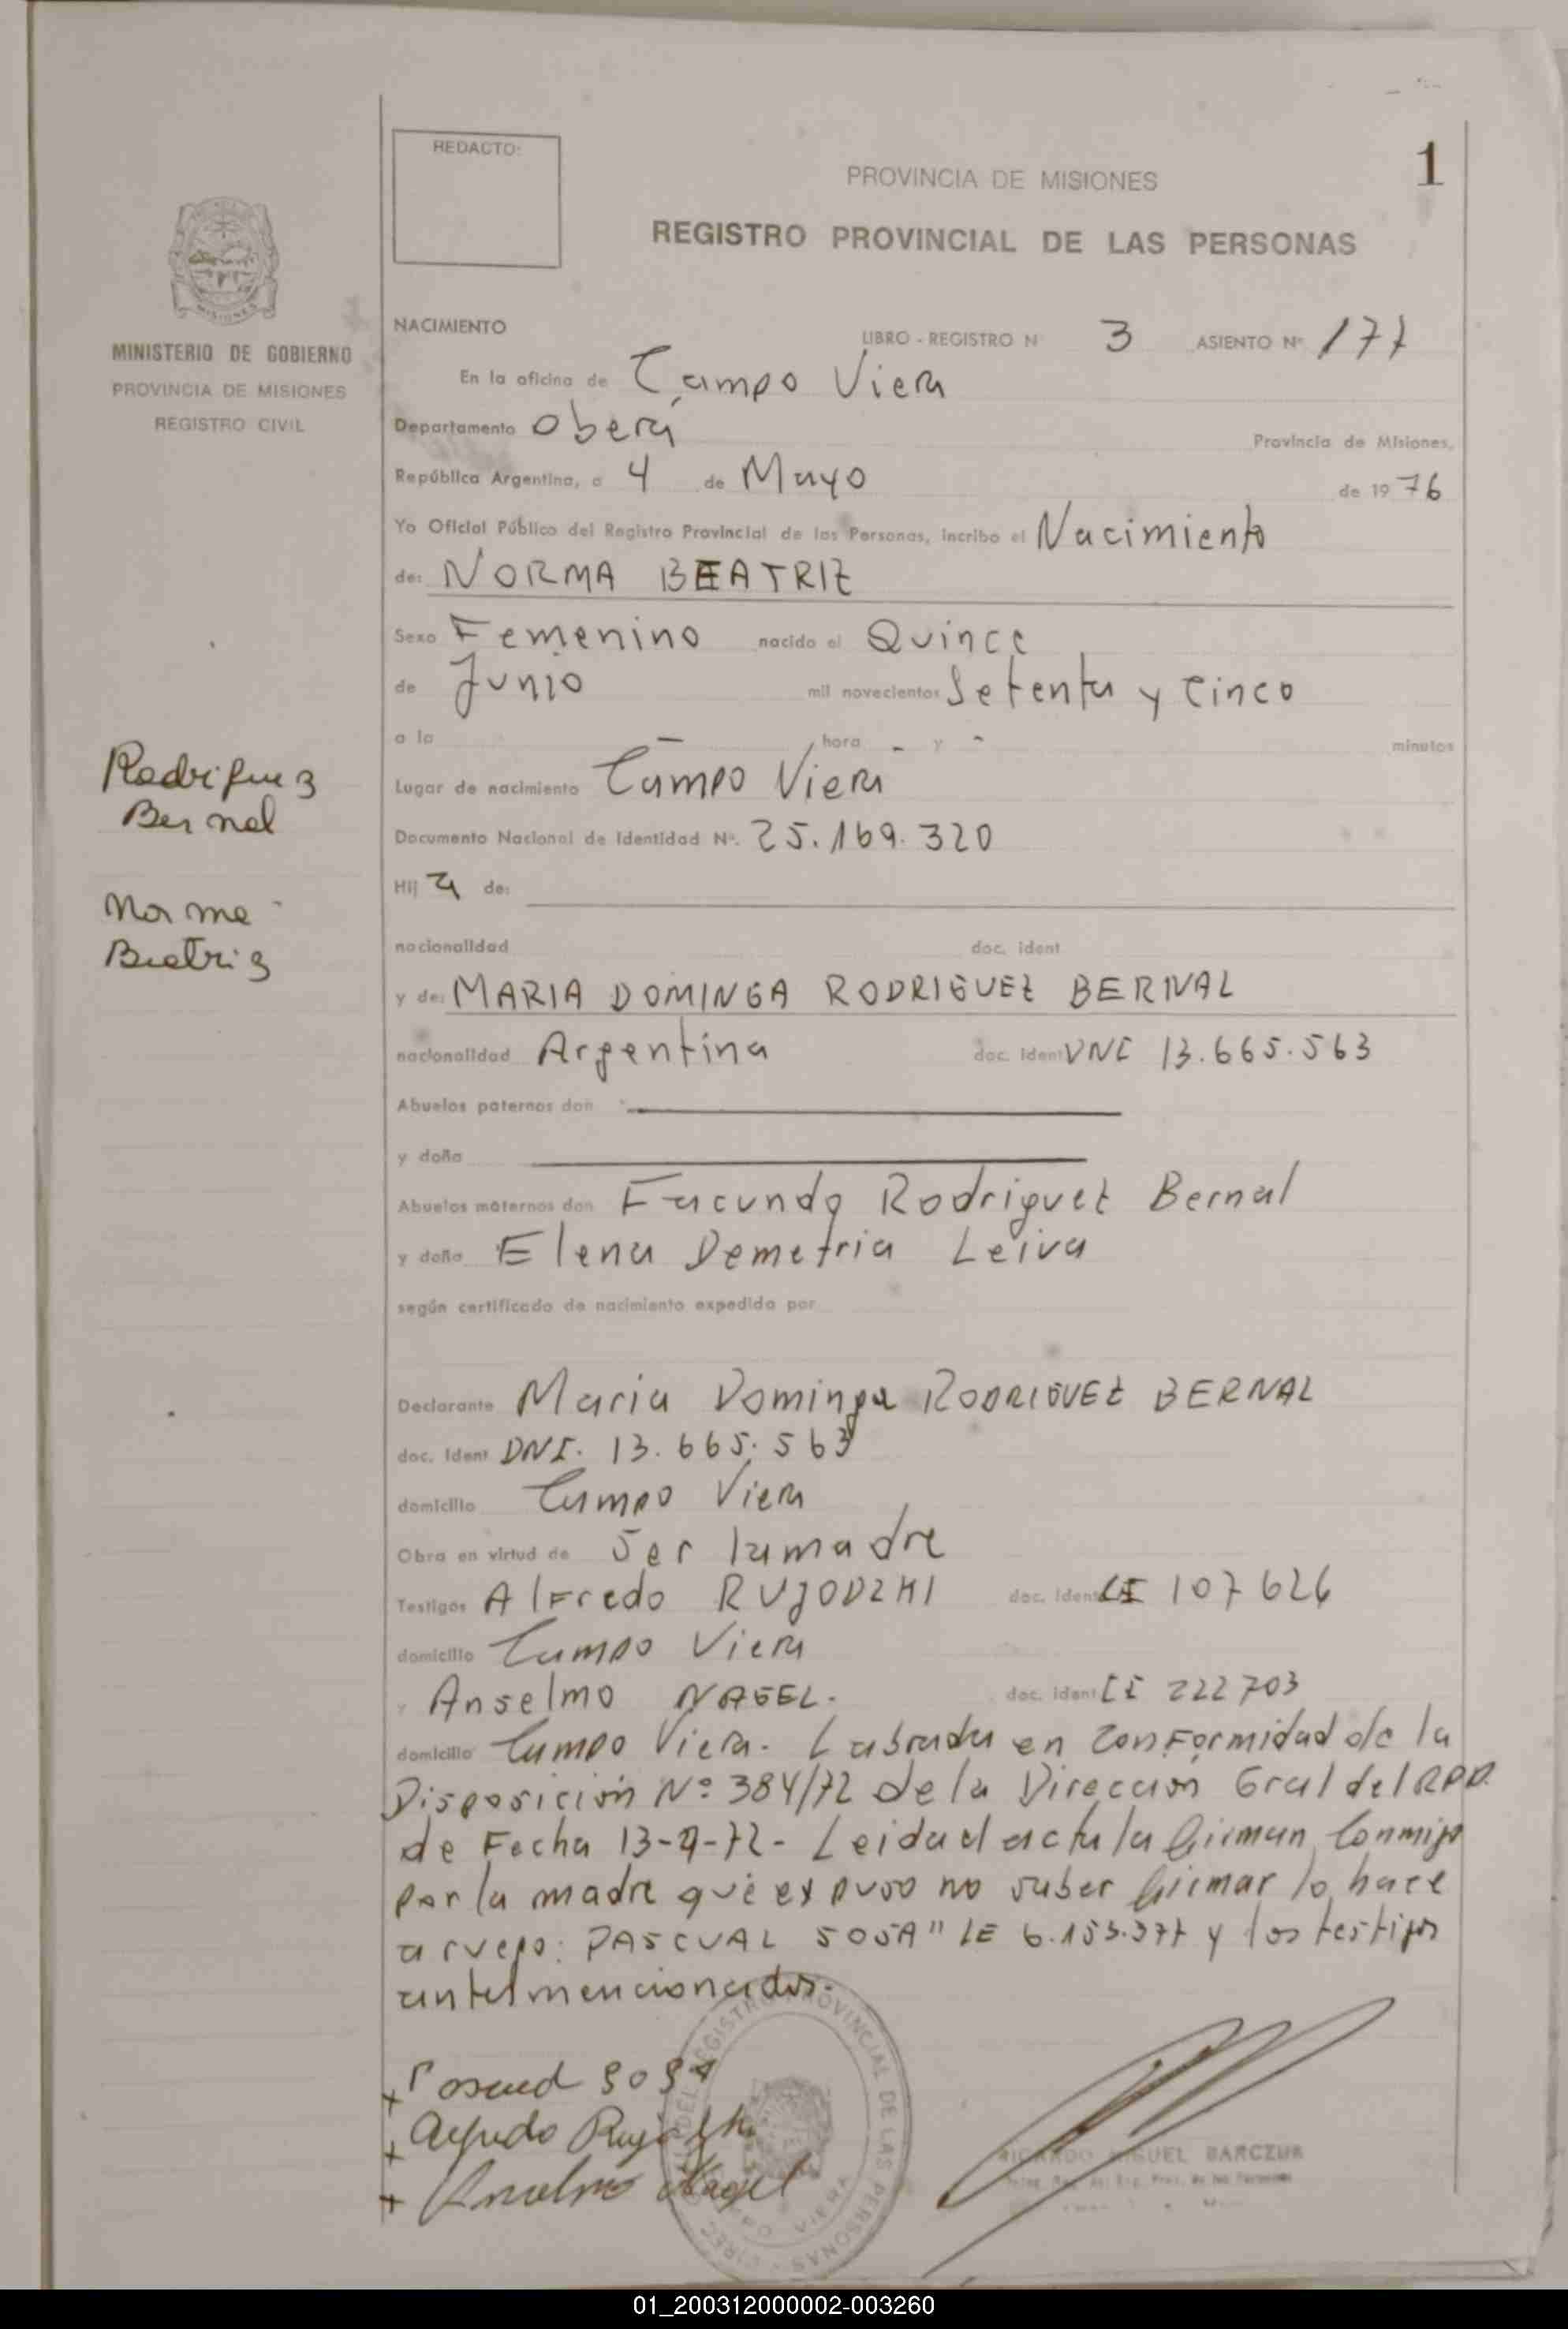 REDACTO:
1
PROVINCIA DE MISIONES
REGISTRO PROVINCIAL DE LAS PERSONAS
MISIONES
MINISTERIO DE GOBIERNO
PROVINCIA DE MISIONES
REGISTRO CIVIL
NACIMIENTO
LIBRO - REGISTRO Nº 3 ASIENTO Nº 177
En la oficina de Campo Viera
Departamento Oberá Provincia de Misiones,
República Argentina, a 4 de Mayo de 1976
Yo Oficial Público del Registro Provincial de las Personas, incribo el Nacimiento
de: NORMA BEATRIZ
Sexo Femenino nacido el Quince
de Junio mil novecientos Setenta y Cinco
a la — hora - y - minutos
Rodriguez
Bernal
Norma
Beatriz
Lugar de nacimiento Campo Viera
Documento Nacional de Identidad Nº. 25.169.320
Hija de:
nacionalidad doc. ident
y de: MARIA DOMINGA RODRIGUEZ BERNAL
nacionalidad Argentina doc. ident DNI 13.665.563
Abuelos paternos don
y doña
Abuelos maternos don Facundo Rodriguez Bernal
y doña Elena Demetria Leiva
según certificado de nacimiento expedido por
Declarante Maria Dominga RODRIGUEZ BERNAL
doc. ident DNI. 13.665.563
domicilio Campo Viera
Obra en virtud de Ser la madre
Testigos Alfredo RUJODZKI doc. ident CI 107626
domicilio Campo Viera
y Anselmo NAGEL. doc. ident CI 222703
domicilio Campo Viera. Labrada en Conformidad de la
Disposición Nº 384/72 de la Dirección Gral del RPP.
de Fecha 13-9-72- Leida el acta la firman Conmigo
por la madre que expuso no saber firmar lo hace
a ruego: PASCUAL SOSA" LE 6.153.377 y los testigos
antes mencionados.
+ Pascual Sosa
+ Alfredo
+ Anselmo Nagel
REGISTRO PROVINCIAL DE LAS PERSONAS
CAMPO VIERA
RICARDO MIGUEL BARCZUK